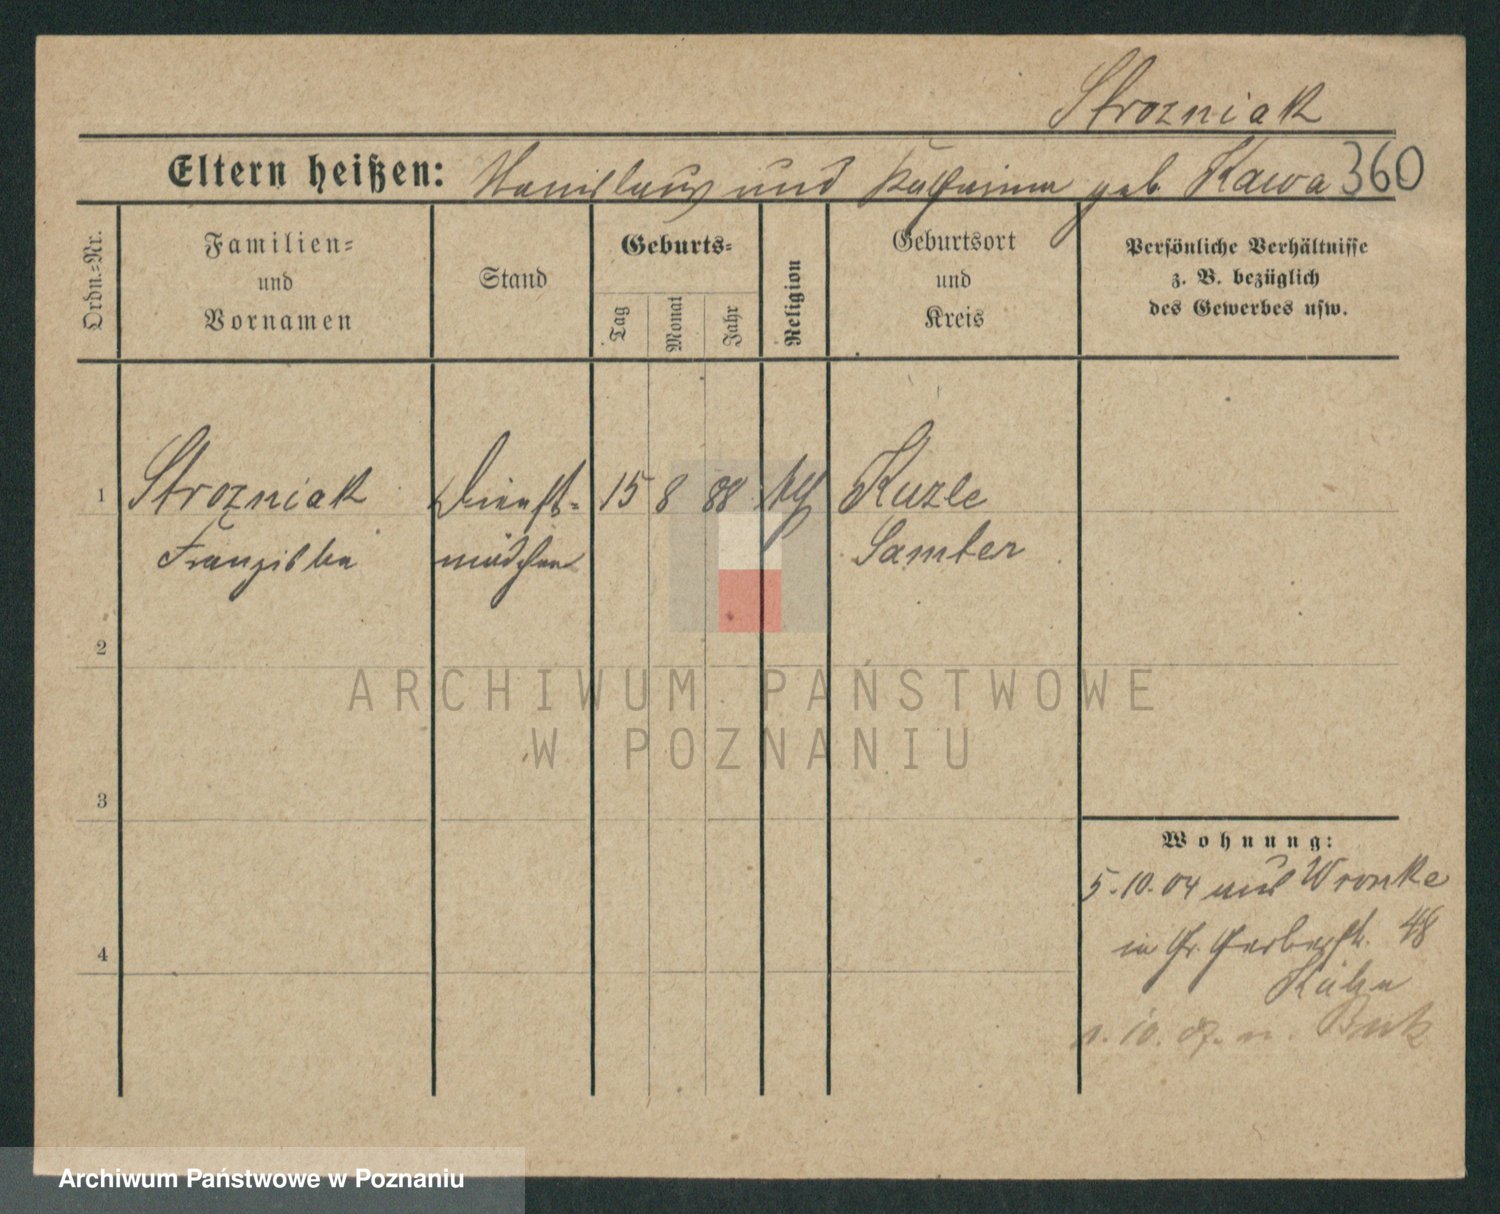 Strozniak
Eltern heißen: Stanislaus und Katharina geb. Kawa 360
Ordn.-Nr.
Familien- und Vornamen
Stand
Geburts-
Tag
Monat
Jahr
Religion
Geburtsort und Kreis
Persönliche Verhältnisse
z. B. bezüglich
des Gewerbes usw.
1 Strozniak Dienst- 15 8 88 kth Kuzle
Franziska mädchen Samter
2
3
4
Wohnung:
5.10.04 aus Wronke
in Gr. Gerberstr. 48
1.10.07. n. Buk
ARCHIWUM PAŃSTWOWE
W POZNANIU
Archiwum Państwowe w Poznaniu